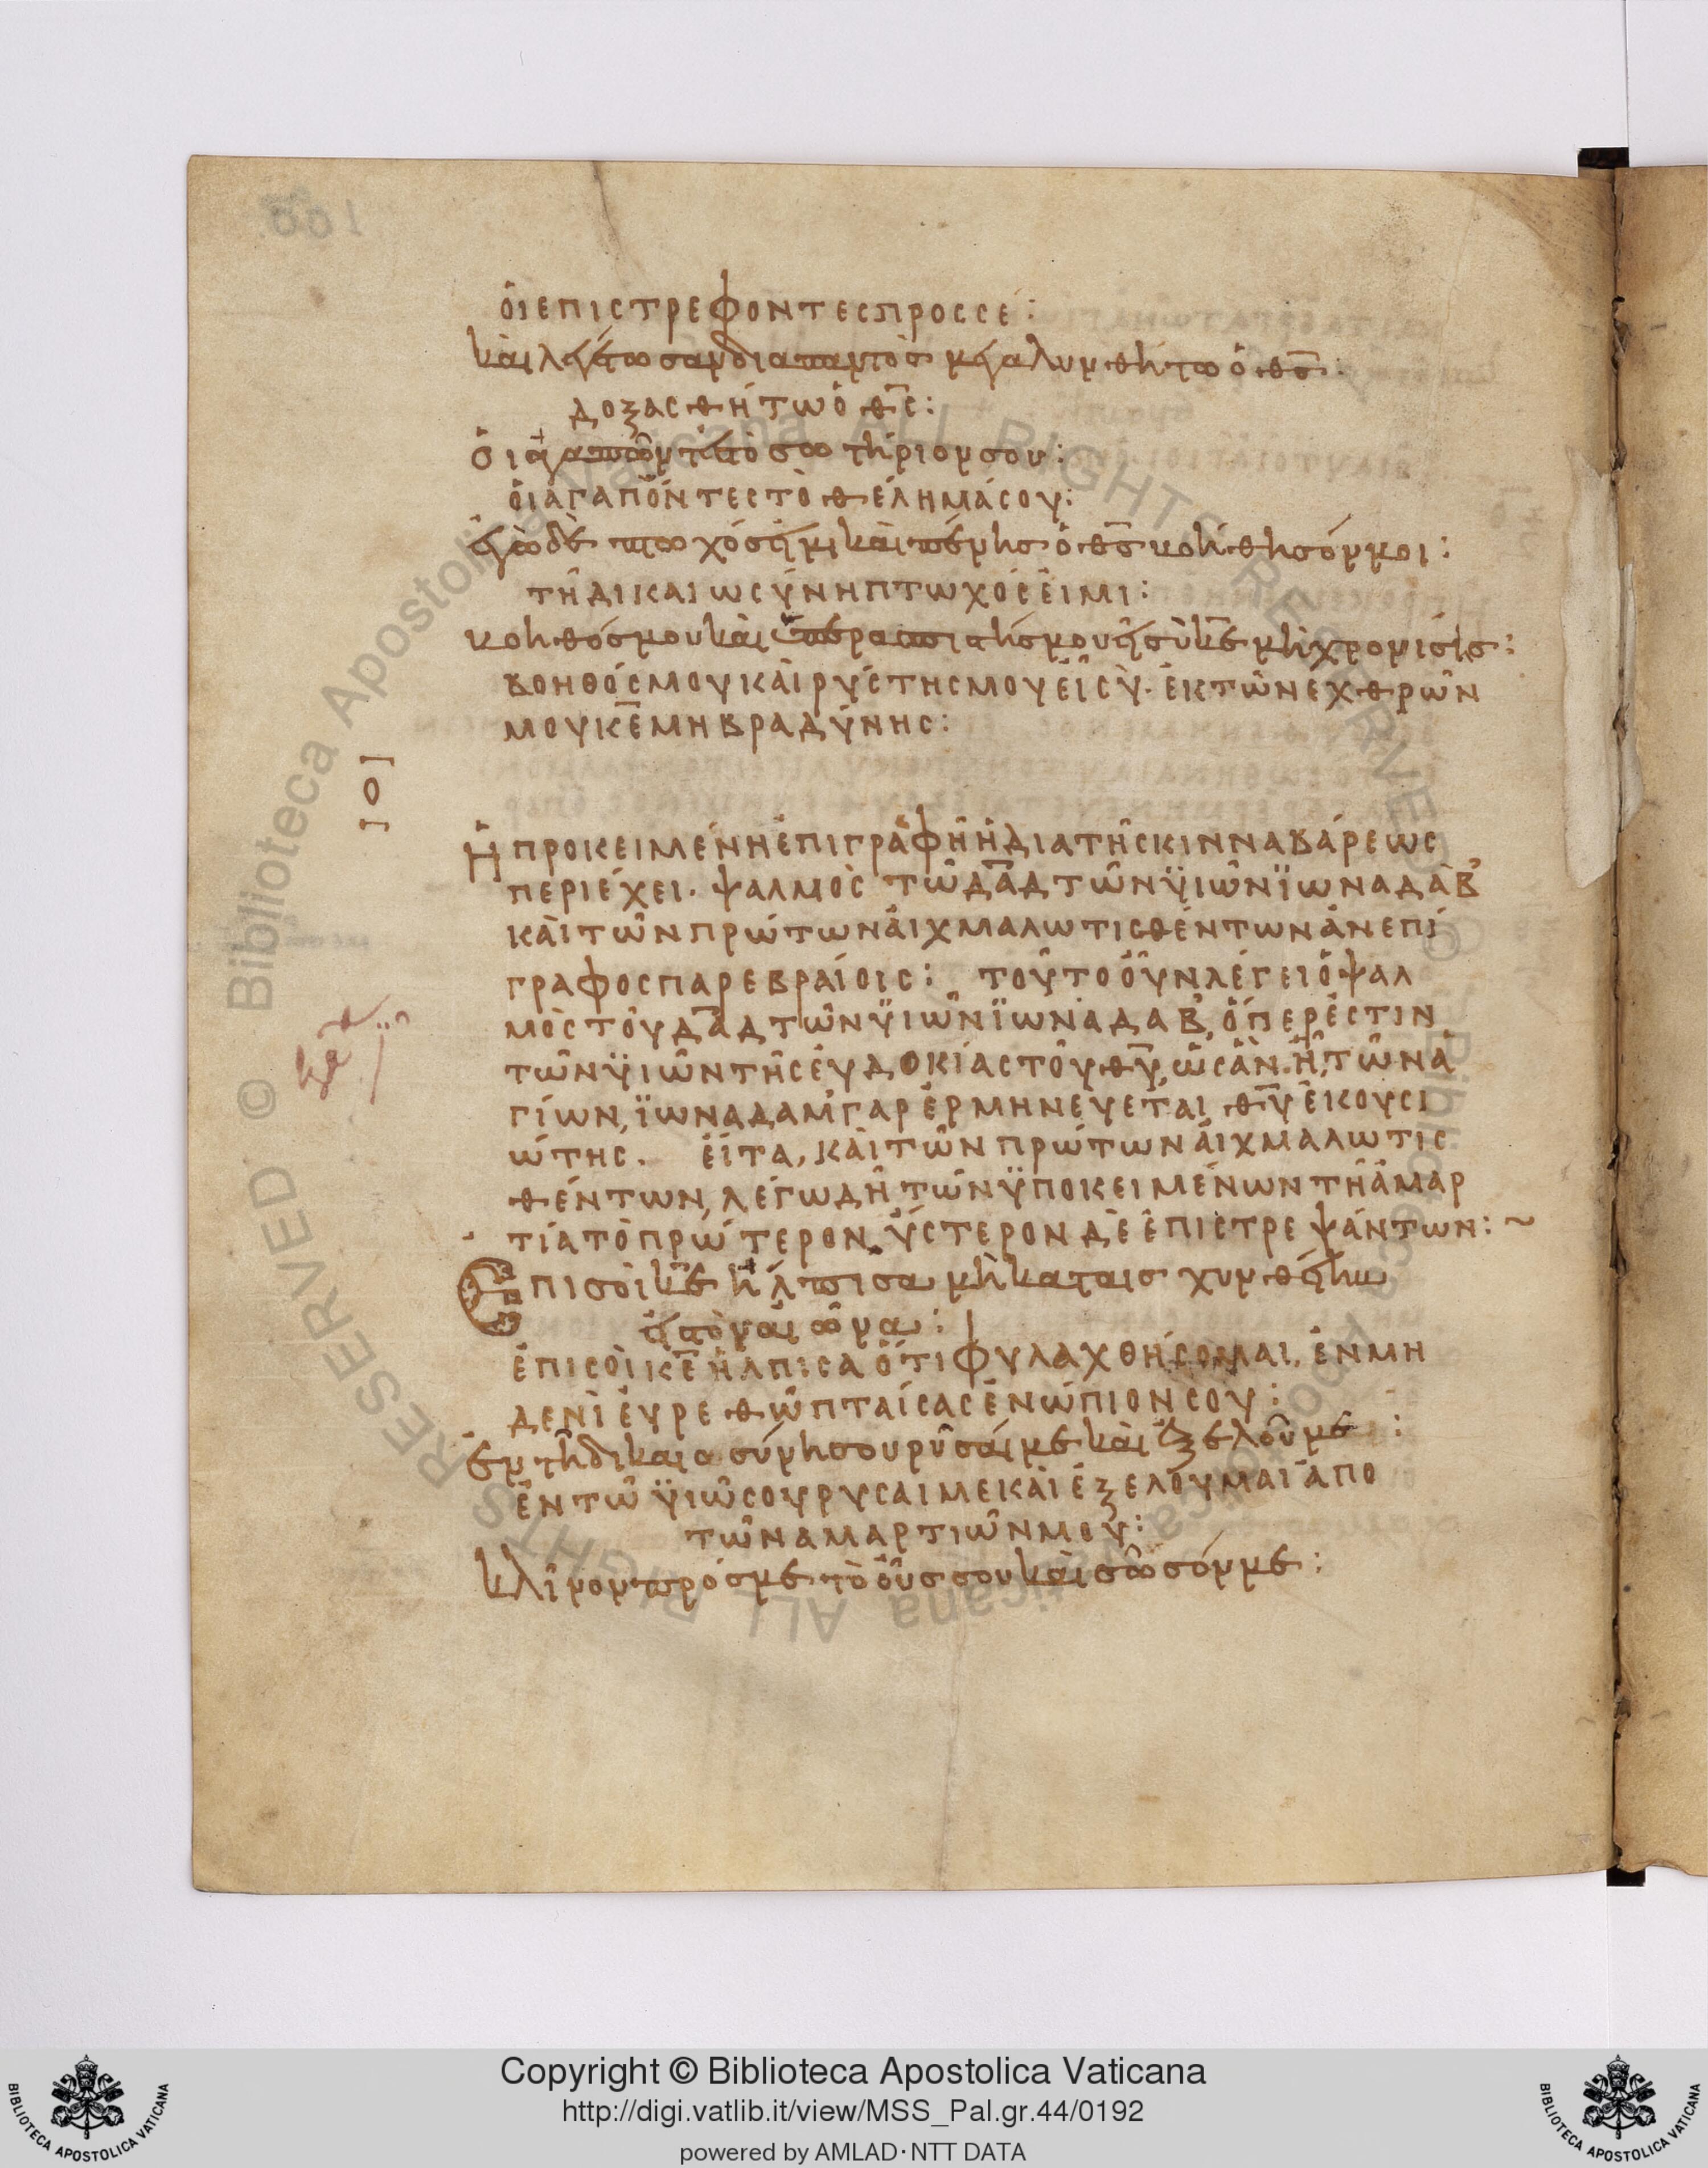 ὁι επιστρεφοντες προς σέ:
καὶ λεγέτωσαν διαπαντὸς μεγαλυνθήτω ὁ θ̅ς̅:
δοξασθήτω ὁ θ̅ς̅:
ὁι ἀγαπῶντες τὸ σωτήριον σου:
ὁι ἀγαπόντες τὸ θέλημά σου:
ἐγὼ δὲ πτωχός εἰμι καὶ πένης ὁ θ̅ς̅ βοήθησόν μοι:
τῆ δικαιωσύνη πτωχός εἰμι:
βοηθός μου καὶ ὑπερασπιστής μου εἶ σὺ κ̅ε̅ μὴ χρονίσῃς:
βοηθός μου καὶ ρύστης μου εἶ σὺ· ἐκ τῶν εχθρῶν
μου κ̅ε̅ μη βραδύνης:
Ἡ προκειμένη ἐπιγραφὴ ἡ διὰ τῆς κινναβάρεως
περιέχει· ψαλμὸς τῶ δ̅α̅δ̅ τῶν ϋιῶν ϊωναδὰβ
κὰι τῶν πρώτων ἀιχμαλωτισθέντων ἀνεπί
γραφος παρ εβραίοις: τοῦτο ὀῦν λέγει ὁ ψαλ
μὸς τοῦ δ̅α̅δ̅ τῶν ϋιῶν ϊωναδαβ, ὅπερ ἐστιν
τῶν ϋιῶν τῆς ἐυδοκίας τοῦ θ̅υ̅, ὡσὰν ἢ, τῶν ἁ
γίων, ϊωναδαμ γαρ ἑρμηνεύεται θ̅υ̅ ἑκουσι
ώτης. ἐίτα, κὰι τῶν πρώτων ἀιχμαλωτισ
θέντων, λέγω δὴ τῶν ϋποκειμένων τῆ ἁμαρ
τία τὸ πρώτερον, ὕστερον δὲ ἐπιστρεψάντων: ~
Ἐπι σοὶ κ̅ε̅ ἤλπισα μὴ καταισχυνθείην
εἰς τὸν αἰῶνα:
ἐπι σοὶ κ̅ε̅ ἤλπισα ὅτι φυλαχθήσομαι, ἐν μη
δενὶ ἑυρεθῶ πταίσας ἐνώπιον σου:
ἐν τῆ δικαιοσύνη σου ρῦσαί με καὶ ἐξελοῦ με:
ἐν τῶ ϋιῶ σου ρυσαι με κὰι ἐξελοῦμαι ἀπο
τῶν αμαρτιῶν μου:
κλῖνον πρός με τὸ οὖς σου καὶ σῶσόν με:
Copyright © Biblioteca Apostolica Vaticana
http://digi.vatlib.it/view/MSS_Pal.gr.44/0192
powered by AMLAD·NTT DATA
BIBLIOTECA APOSTOLICA VATICANA
BIBLIOTECA APOSTOLICA VATICANA